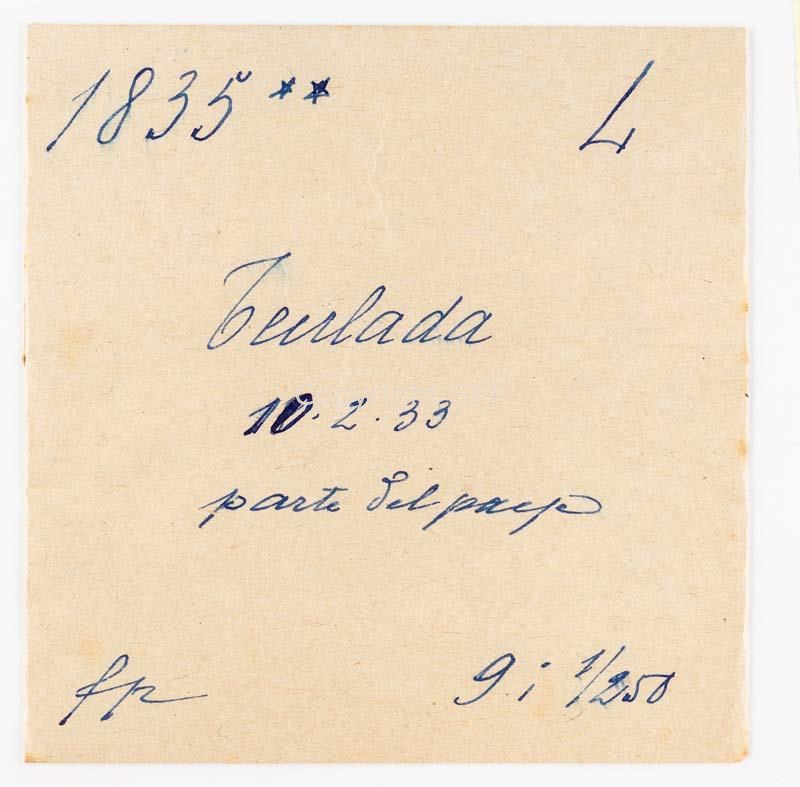 1835** L
Teulada
10.2.33
parte del paese
fp
9 i 1/250